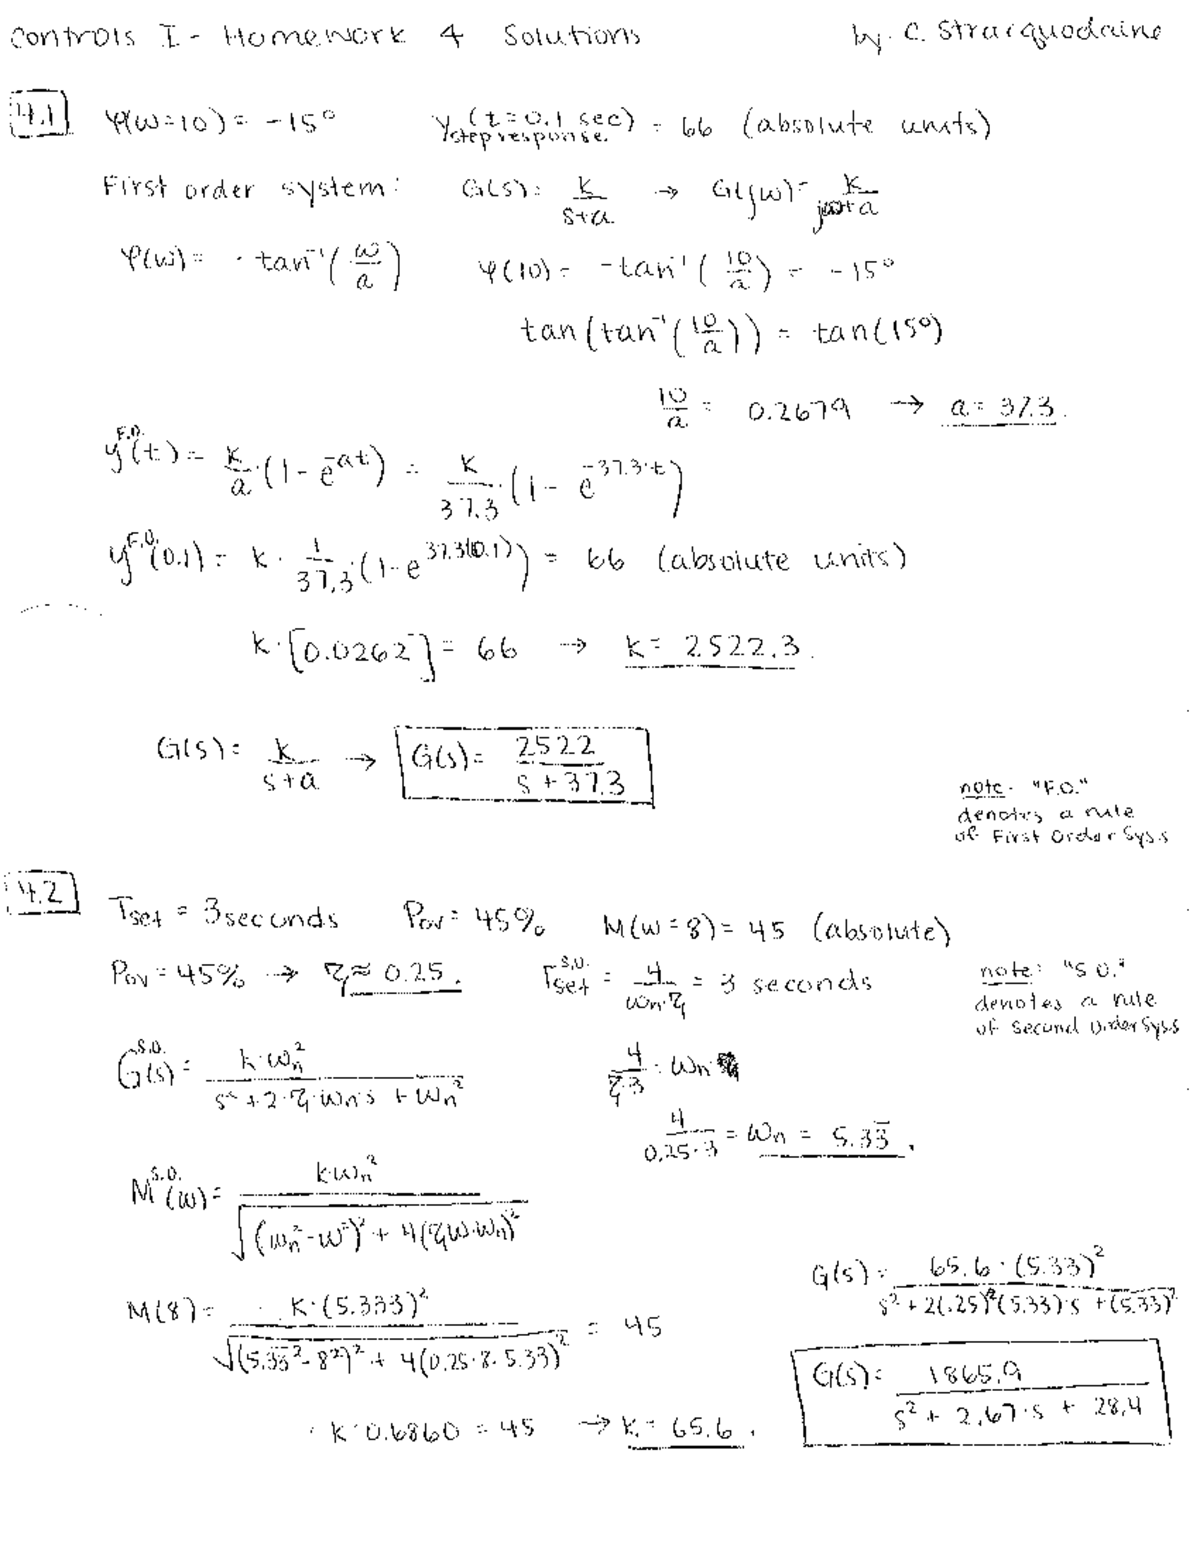 Controls I - Homework 4 Solutions by: C. Straequodaine
4.1 φ(ω=10) = -15° y step response (t=0.1 sec) = 66 (absolute units)
First order system: G(s) = k/(s+a) → G(jω) = k/(jω+a)
φ(ω) = -tan⁻¹(ω/a) φ(10) = -tan⁻¹(10/a) = -15°
tan(tan⁻¹(10/a)) = tan(15°)
10/a = 0.2679 → a = 37.3.
y^F.O.(t) = k/a·(1-e^-at) = k/37.3·(1-e^-37.3·t)
y^F.O.(0.1) = k·1/37.3·(1-e^37.3(0.1)) = 66 (absolute units)
k·[0.0262] = 66 → k = 2522.3.
G(s) = k/(s+a) → G(s) = 2522/(s+37.3)
note: "F.O."
denotes a rule
of First Order Sys.s
4.2 Tset = 3seconds Pov = 45% M(ω=8) = 45 (absolute)
Pov = 45% → ζ ≈ 0.25. Tset^S.O. = 4/(ωn·ζ) = 3 seconds
note: "S.O."
denotes a rule
of Second Order Sys.s
G^S.O.(s) = k·ωn²/(s²+2·ζ·ωn·s+ωn²) 4/(ζ·3) = ωn
4/(0.25·3) = ωn = 5.33.
M^S.O.(ω) = k·ωn²/√((ωn²-ω²)²+4(ζ·ω·ωn)²)
G(s) = 65.6·(5.33)²/(s²+2(.25)²(5.33)·s+(5.33)²)
M(8) = k·(5.333)²/√((5.33²-8²)²+4(0.25·8·5.33)²) = 45
G(s) = 1865.9/(s²+2.67·s+28.4)
k·0.6860 = 45 → k = 65.6.